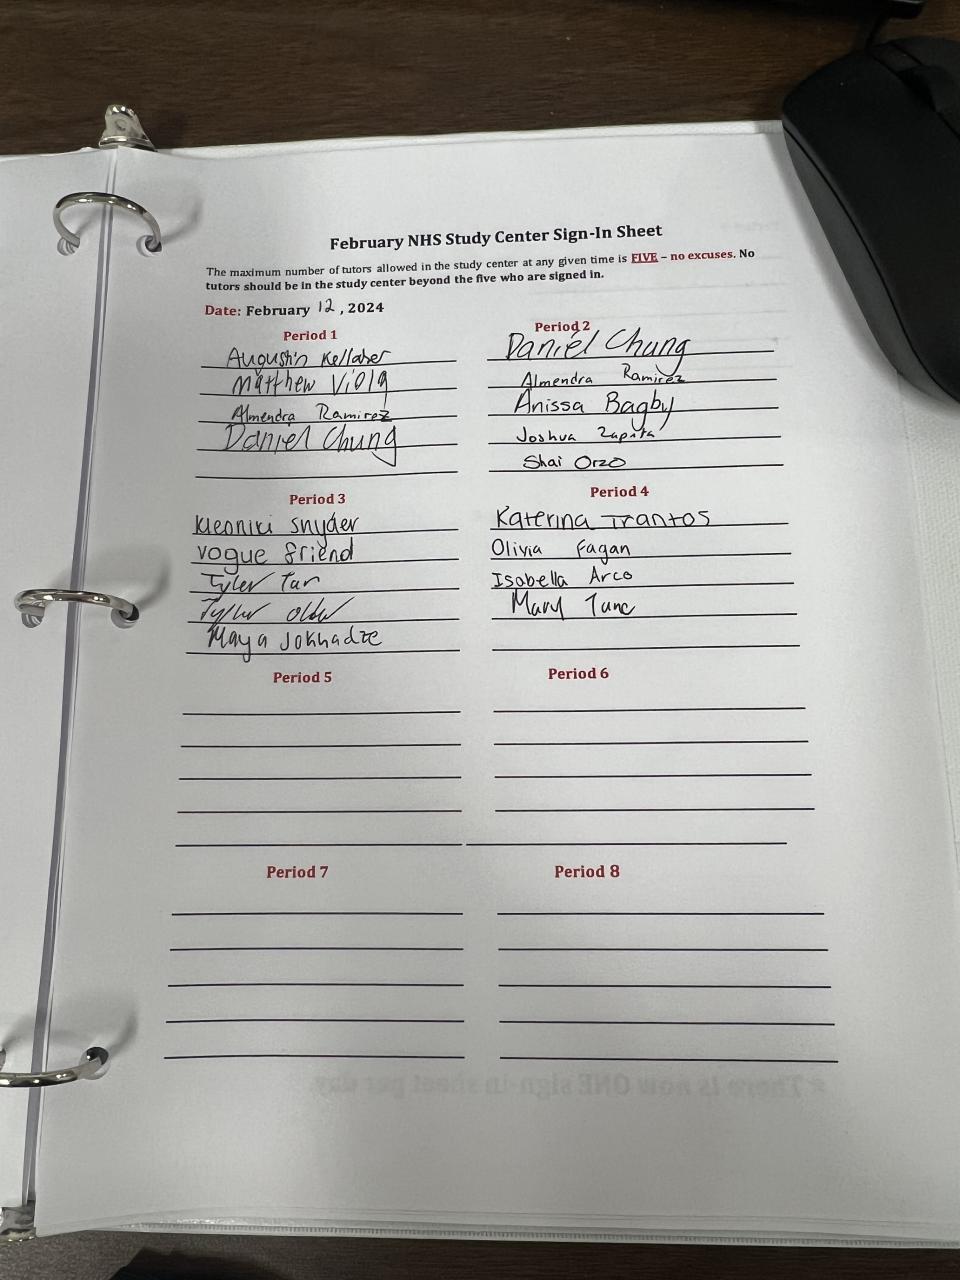 February NHS Study Center Sign-In Sheet
The maximum number of tutors allowed in the study center at any given time is FIVE – no excuses. No
tutors should be in the study center beyond the five who are signed in.
Date: February 12, 2024
Period 1
Augustin Kellaher
Matthew Viola
Almendra Ramirez
Daniel Chung
Period 2
Daniel Chung
Almendra Ramirez
Anissa Bagby
Joshua Zapata
Shai Orzo
Period 3
Kleoniki Snyder
Vogue Friend
Tyler
Tyler
Maya Jokhadze
Period 4
Katerina Trantos
Olivia Fagan
Isabella Arco
Mary
Period 5
Period 6
Period 7
Period 8
There is now ONE sign-in sheet per day